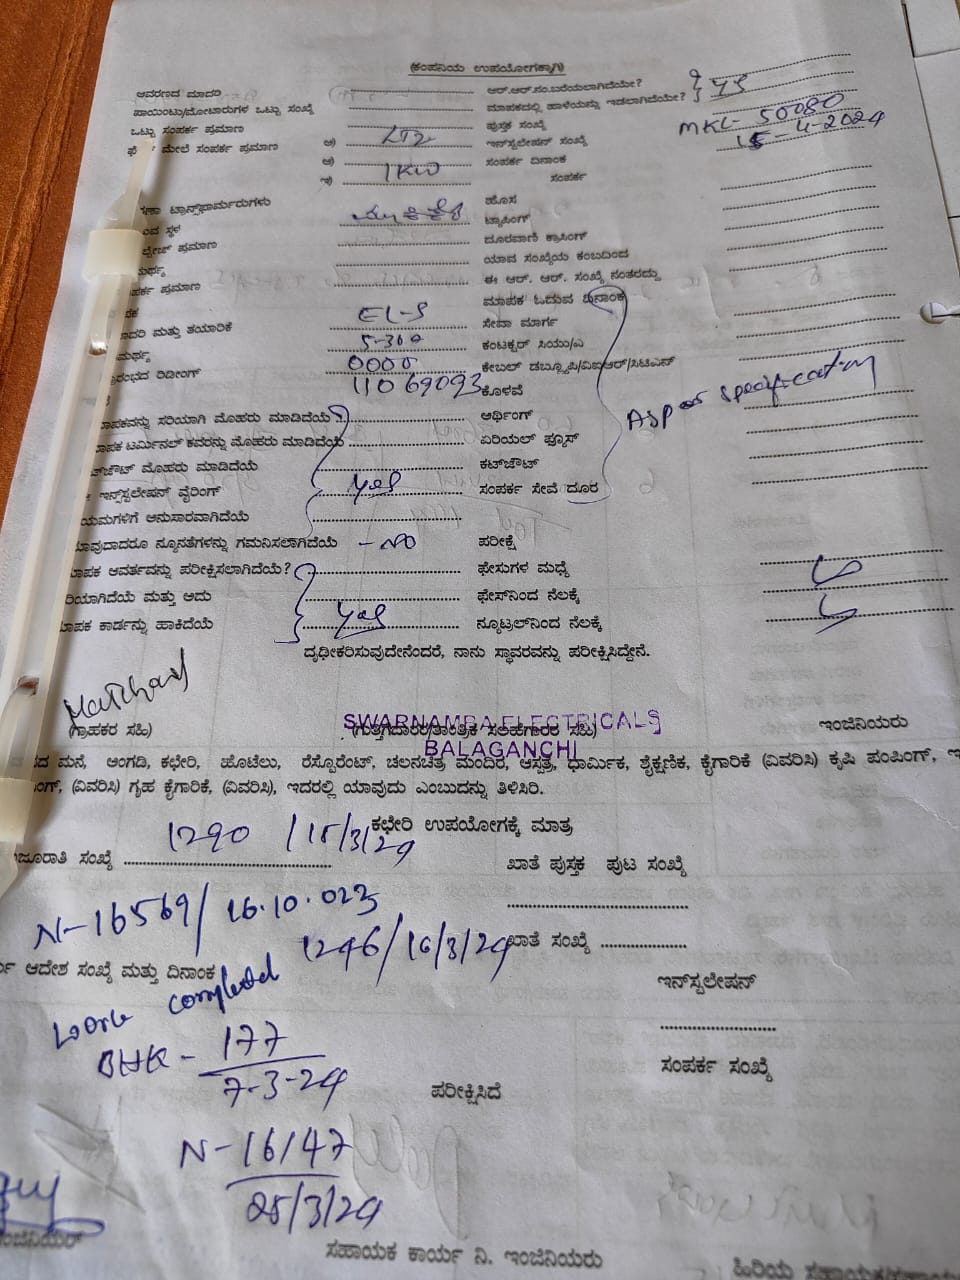 (ಕಂಪನಿಯ ಉಪಯೋಗಕ್ಕಾಗಿ)
ಆವರಣದ ಮಾದರಿ ಆರ್.ಆರ್.ನಂ.ಬರೆಯಲಾಗಿದೆಯೇ? Yes
ಪಾಯಿಂಟು/ಮೋಟಾರುಗಳ ಒಟ್ಟು ಸಂಖ್ಯೆ ಮಾಪಕದಲ್ಲಿ ಹಾಳೆಯನ್ನು ಇಡಲಾಗಿದೆಯೇ?
ಒಟ್ಟು ಸಂಪರ್ಕ ಪ್ರಮಾಣ ಪುಸ್ತಕ ಸಂಖ್ಯೆ MKL-50080
ಮೇಲೆ ಸಂಪರ್ಕ ಪ್ರಮಾಣ ಅ) LT2 ಇನ್‌ಸ್ಟಲೇಷನ್ ಸಂಖ್ಯೆ 15-4-2024
ಆ) 1KW ಸಂಪರ್ಕ ದಿನಾಂಕ
ಇ) ಸಂಪರ್ಕ
ಟ್ರಾನ್ಸ್‌ಫಾರ್ಮರುಗಳು ಹೊಸ
ಸ್ಥಳ ಟ್ಯಾಪಿಂಗ್
ಪ್ರಮಾಣ ದೂರವಾಣಿ ಕ್ರಾಸಿಂಗ್
ಯಾವ ಸಂಖ್ಯೆಯ ಕಂಬದಿಂದ
ಪ್ರಮಾಣ ಈ ಆರ್. ಆರ್. ಸಂಖ್ಯೆ ನಂತರದ್ದು
ಮಾಪಕ ಓದುವ ದಿನಾಂಕ
ಮತ್ತು ತಯಾರಿಕೆ EL-S ಸೇವಾ ಮಾರ್ಗ
5-300 ಕಂಟಕ್ಟರ್ ಸಿಯು/ಎ
ರೀಡಿಂಗ್ 0000 ಕೇಬಲ್ ಡಬ್ಲ್ಯೂಪಿ/ವಿಐಆರ್/ಸಿಟಿಎಸ್
11069093 ಕೊಳವೆ
As per specification
ಸರಿಯಾಗಿ ಮೊಹರು ಮಾಡಿದೆಯೆ ? ಅರ್ಥಿಂಗ್
ಟರ್ಮಿನಲ್ ಕವರನ್ನು ಮೊಹರು ಮಾಡಿದೆಯೆ ಏರಿಯಲ್ ಫ್ಯೂಸ್
ಮೊಹರು ಮಾಡಿದೆಯೆ ಕಟ್‌ಔಟ್
ಇನ್‌ಸ್ಟಲೇಷನ್ ವೈರಿಂಗ್ Yes ಸಂಪರ್ಕ ಸೇವೆ ದೂರ
ಅನುಸಾರವಾಗಿದೆಯೆ
ನ್ಯೂನತೆಗಳನ್ನು ಗಮನಿಸಲಾಗಿದೆಯೆ - NO ಪರೀಕ್ಷೆ
ಆವರ್ತವನ್ನು ಪರೀಕ್ಷಿಸಲಾಗಿದೆಯೆ? ಫೇಸುಗಳ ಮಧ್ಯೆ
ಮತ್ತು ಅದು ಫೇಸ್‌ನಿಂದ ನೆಲಕ್ಕೆ
ಕಾರ್ಡನ್ನು ಹಾಕಿದೆಯೆ Yes ನ್ಯೂಟ್ರಲ್‌ನಿಂದ ನೆಲಕ್ಕೆ
ದೃಢೀಕರಿಸುವುದೇನೆಂದರೆ, ನಾನು ಸ್ಥಾವರವನ್ನು ಪರೀಕ್ಷಿಸಿದ್ದೇನೆ.
SWARNAMBA ELECTRICALS
(ಗ್ರಾಹಕರ ಸಹಿ) (ಗುತ್ತಿಗೆದಾರರ/ತಾಂತ್ರಿಕ ಸಲಹೆಗಾರರ ಸಹಿ) ಇಂಜಿನಿಯರು
BALAGANCHI
ಮನೆ, ಅಂಗಡಿ, ಕಛೇರಿ, ಹೊಟೆಲು, ರೆಸ್ಟೊರೆಂಟ್, ಚಲನಚಿತ್ರ ಮಂದಿರ, ಆಸ್ಪತ್ರೆ, ಧಾರ್ಮಿಕ, ಶೈಕ್ಷಣಿಕ, ಕೈಗಾರಿಕೆ (ವಿವರಿಸಿ) ಕೃಷಿ ಪಂಪಿಂಗ್,
(ವಿವರಿಸಿ) ಗೃಹ ಕೈಗಾರಿಕೆ, (ವಿವರಿಸಿ), ಇದರಲ್ಲಿ ಯಾವುದು ಎಂಬುದನ್ನು ತಿಳಿಸಿರಿ.
1290 /15/3/24 ಕಛೇರಿ ಉಪಯೋಗಕ್ಕೆ ಮಾತ್ರ
ಸಂಖ್ಯೆ ಖಾತೆ ಪುಸ್ತಕ ಪುಟ ಸಂಖ್ಯೆ
N-16569/ 16.10.023
1246/16/3/24 ಖಾತೆ ಸಂಖ್ಯೆ
ಆದೇಶ ಸಂಖ್ಯೆ ಮತ್ತು ದಿನಾಂಕ ಇನ್‌ಸ್ಟಲೇಷನ್
Work completed
BHK - 177 ಸಂಪರ್ಕ ಸಂಖ್ಯೆ
7-3-24 ಪರೀಕ್ಷಿಸಿದೆ
N-16147
25/3/24
ಸಹಾಯಕ ಕಾರ್ಯ ನಿ. ಇಂಜಿನಿಯರು ಹಿರಿಯ